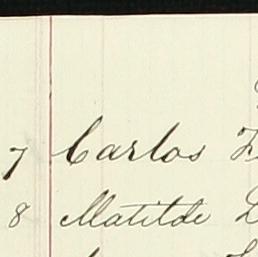 7 Carlos
8 Matilde